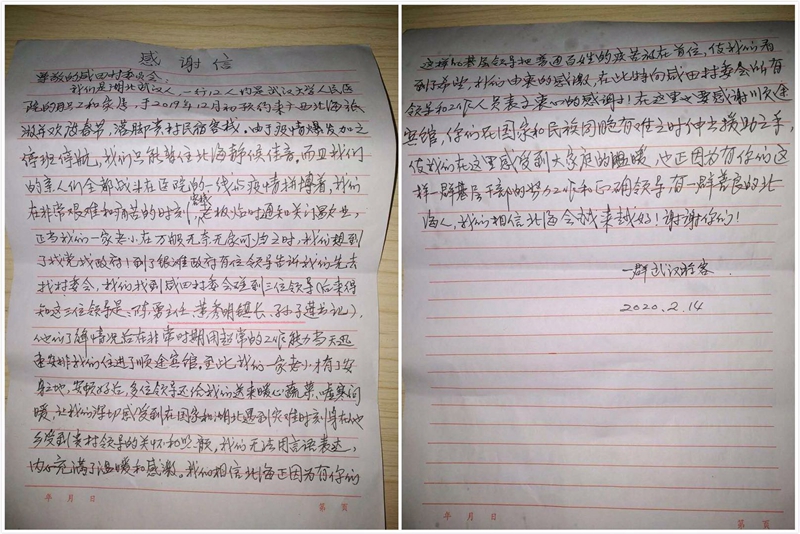 感谢信
尊敬的咸田村委员会：
我们是湖北武汉人，一行12人均是武汉大学人民医
院的职工和家属，于2019年12月初预约来广西北海旅
游并欢度春节，落脚贵村民宿客栈。由于疫情爆发加之
停班停航，我们只能暂住北海静候佳音，而且我们
的亲人们全部战斗在医院的一线与疫情拼搏着，我们
在非常艰难和痛苦的时刻，客栈老板临时通知关门歇业，
正当我们一家老小在万般无奈无家可归之时，我们想到
了找党找政府！到了银滩政府有位领导告诉我们先去
找村委会，我们找到咸田村委会碰到三位领导（后来得
知这三位领导是：陈勇主任、黄秀明镇长、孙子莲书记），
他们了解情况后在非常时期用超常的工作能力当天迅
速安排我们住进了顺途宾馆。至此我们一家老小才有了安
身之地，安顿好后，多位领导还给我们送来暖心蔬菜，嘘寒问
暖，让我们深切感受到在国家和湖北遇到灾难时刻身在他
乡受到贵村领导的关怀和照顾，我们无法用言语表达，
内心充满了温暖和感激。我们相信北海正因为有你们
年 月 日
第 页
这样的基层领导把普通百姓的疾苦放在首位，使我们看
到了希望，我们由衷的感激，在此特向咸田村委会所有
领导和工作人员表示衷心的感谢！在这里也要感谢顺途
宾馆，你们在国家和民族团胞有难之时伸出援助之手，
使我们在这里感受到大家庭的温暖，也正因为有你们这
样一群基层干部的努力工作和正确领导，有一群善良的北
海人，我们相信北海会越来越好！谢谢你们！
一群武汉旅客
2020.2.14
年 月 日
第 页